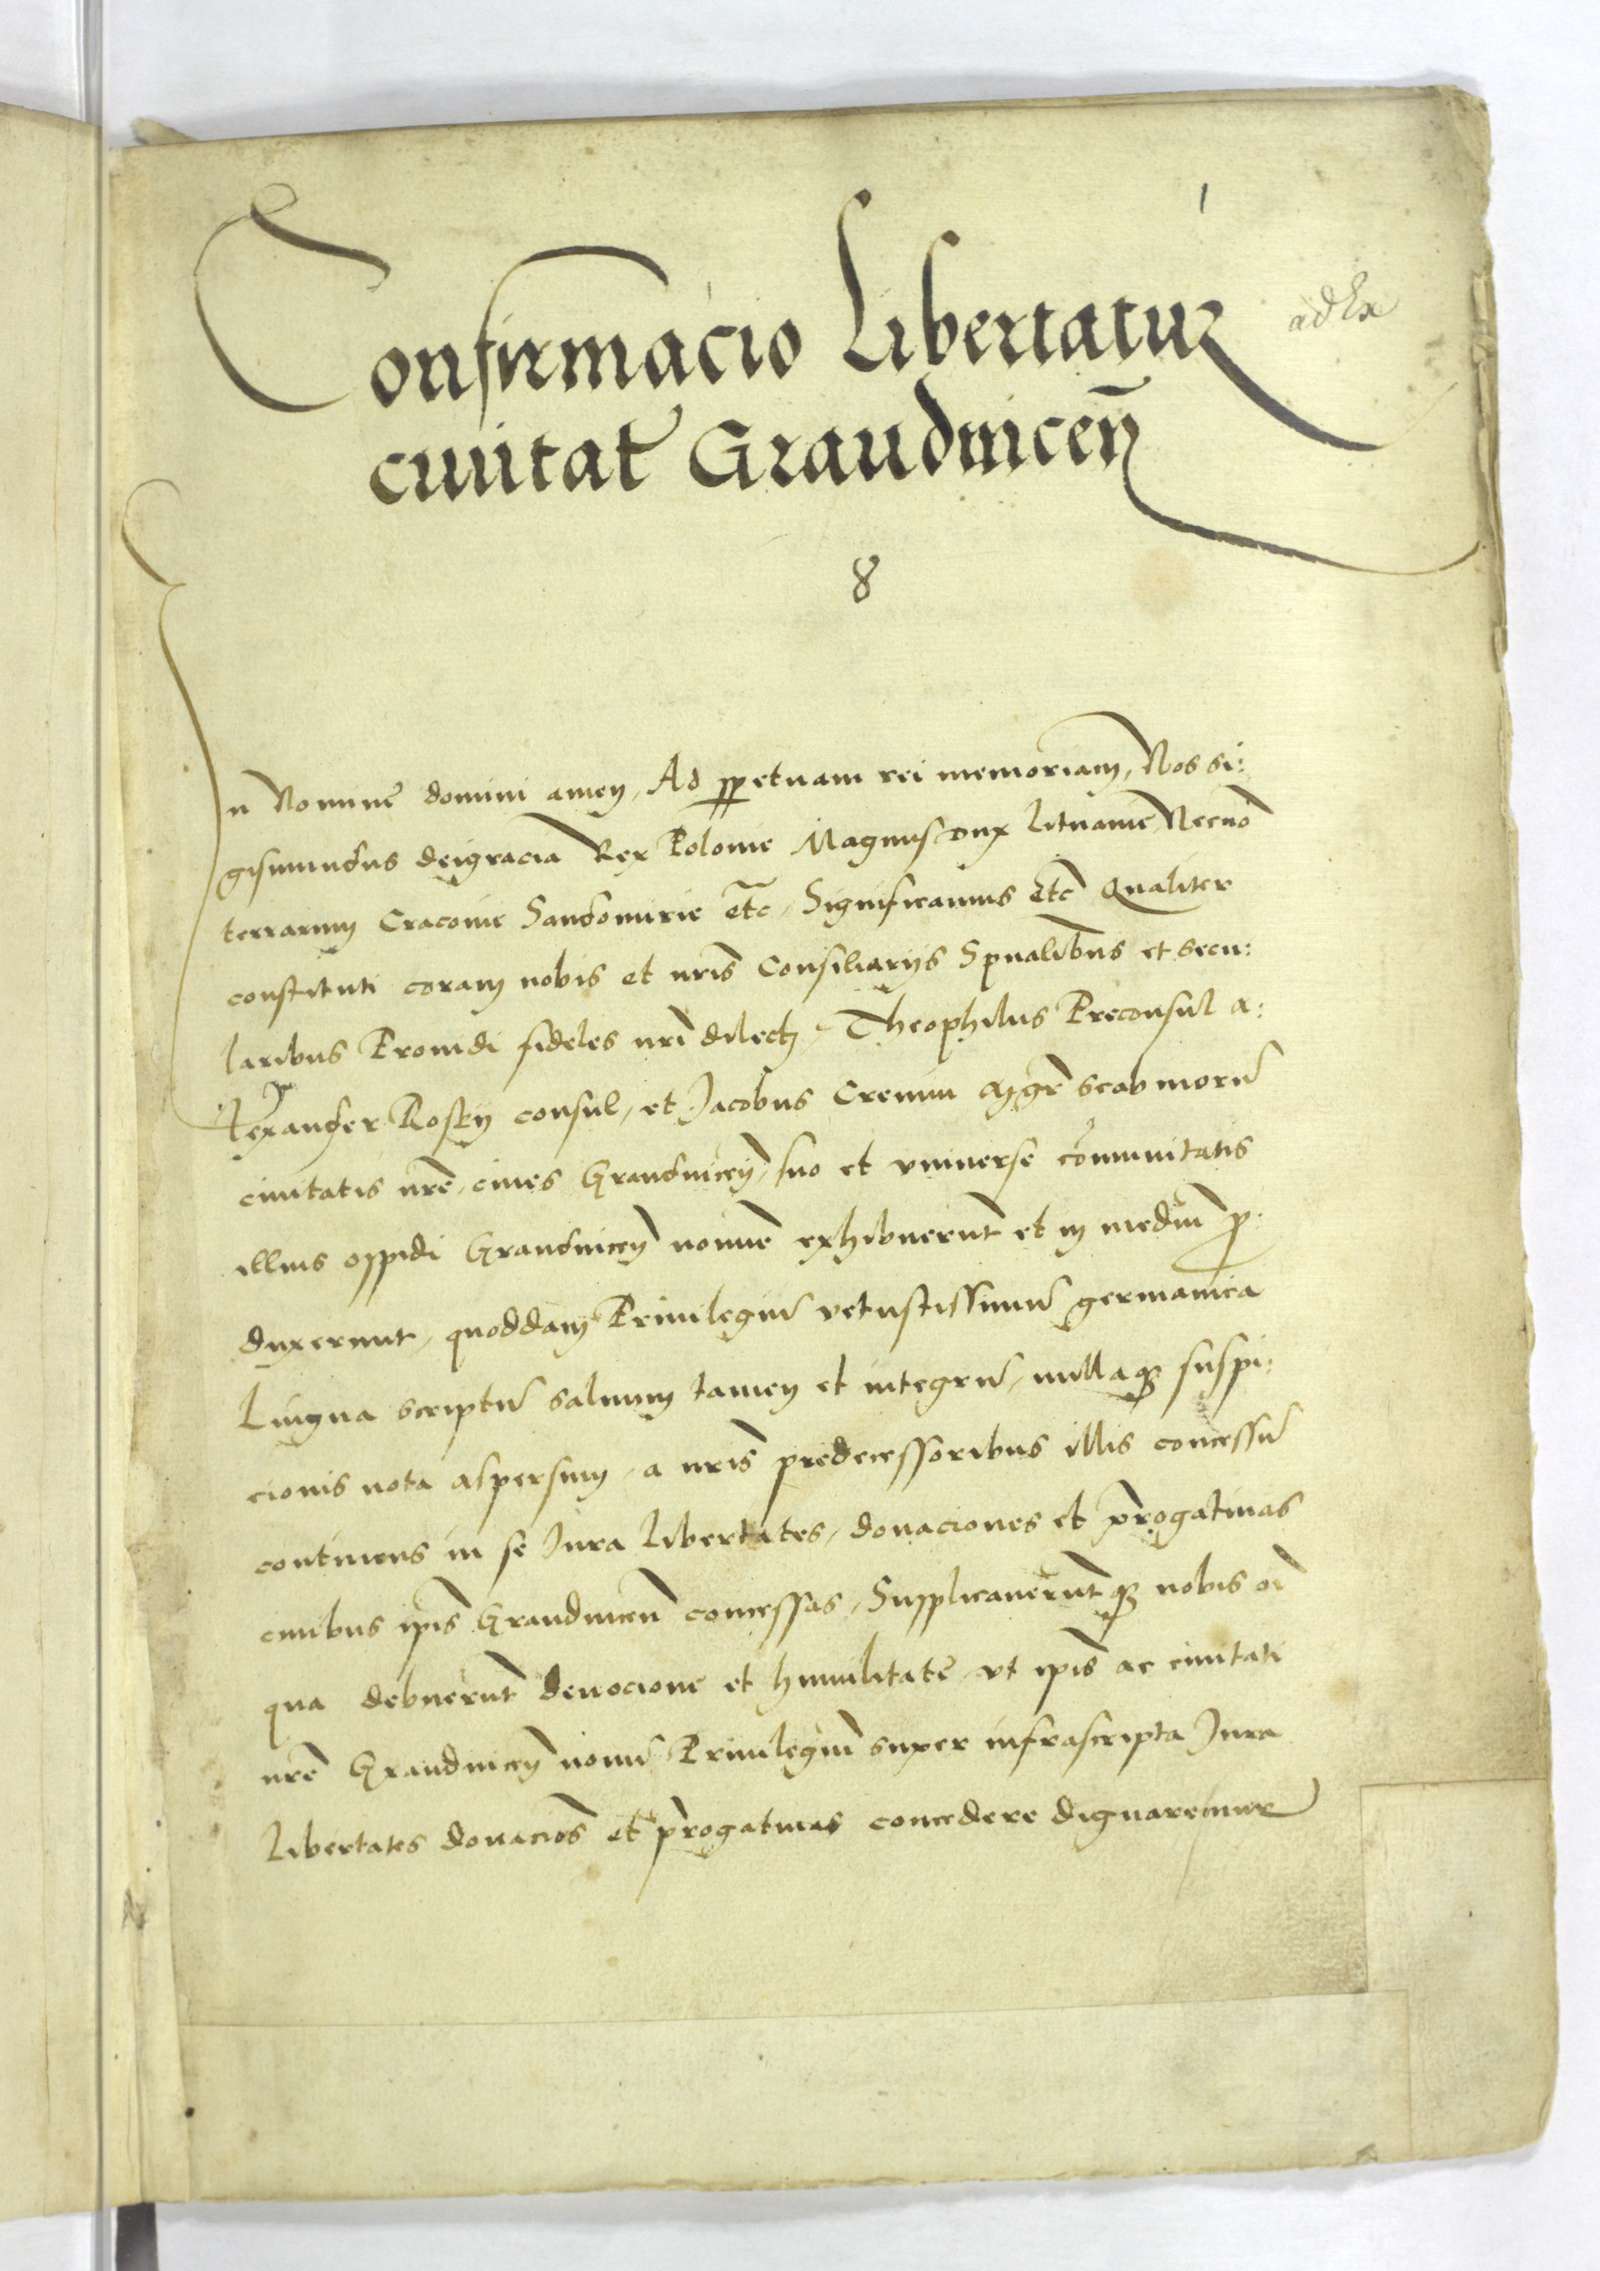 1
Confirmacio Libertatuʒ
ad Ex
ciuitat̃ Graudnicen̄
8
In Nomine domini amen, Ad ꝑpetuam rei memoriam, Nos Si:
gismundus dei gracia Rex Polonie Magnus dux Lituanie Necno͂
terrarum Cracouie Sandomirie etc̃, Significamus etc̃ Qualiter
constituti coram nobis et nr̃is Consiliarijs Spualibus et secu:
laribus Prouidi fideles nr̃i dilecti, Theophilus Preconsul A:
lexander Rosky consul, et Jacobus Cremm mgr̃ scabinoru͂
ciuitatis nr̃e, ciues Graudnicen̄, suo et vniuerse co͂munitatis
illius oppidi Graudnicen̄ noi͂e exhibuerunt et in mediu͂ ꝓ:
duxerunt, quoddam Priuilegiu͂ vetustissimu͂ germanica
Lingua scriptu͂ saluum tamen et integru͂, nullaqꝫ suspi:
cionis nota aspersum, a nr̃is predecessoribus illis concessu͂
continens in se Jura Libertates, donaciones et p̃rogatiuas
ciuibus ip̃is Graudnicen̄ concessas, Supplicaueruntqꝫ nobis oi͂
qua debuerunt deuocione et humilitate, vt ip̃is ac ciuitati
nr̃e Graudnicen̄ nouu͂ Priuilegiu͂ super infrascripta Jura
Libertates donacio͂s et p̃rogatiuas concedere dignaremur